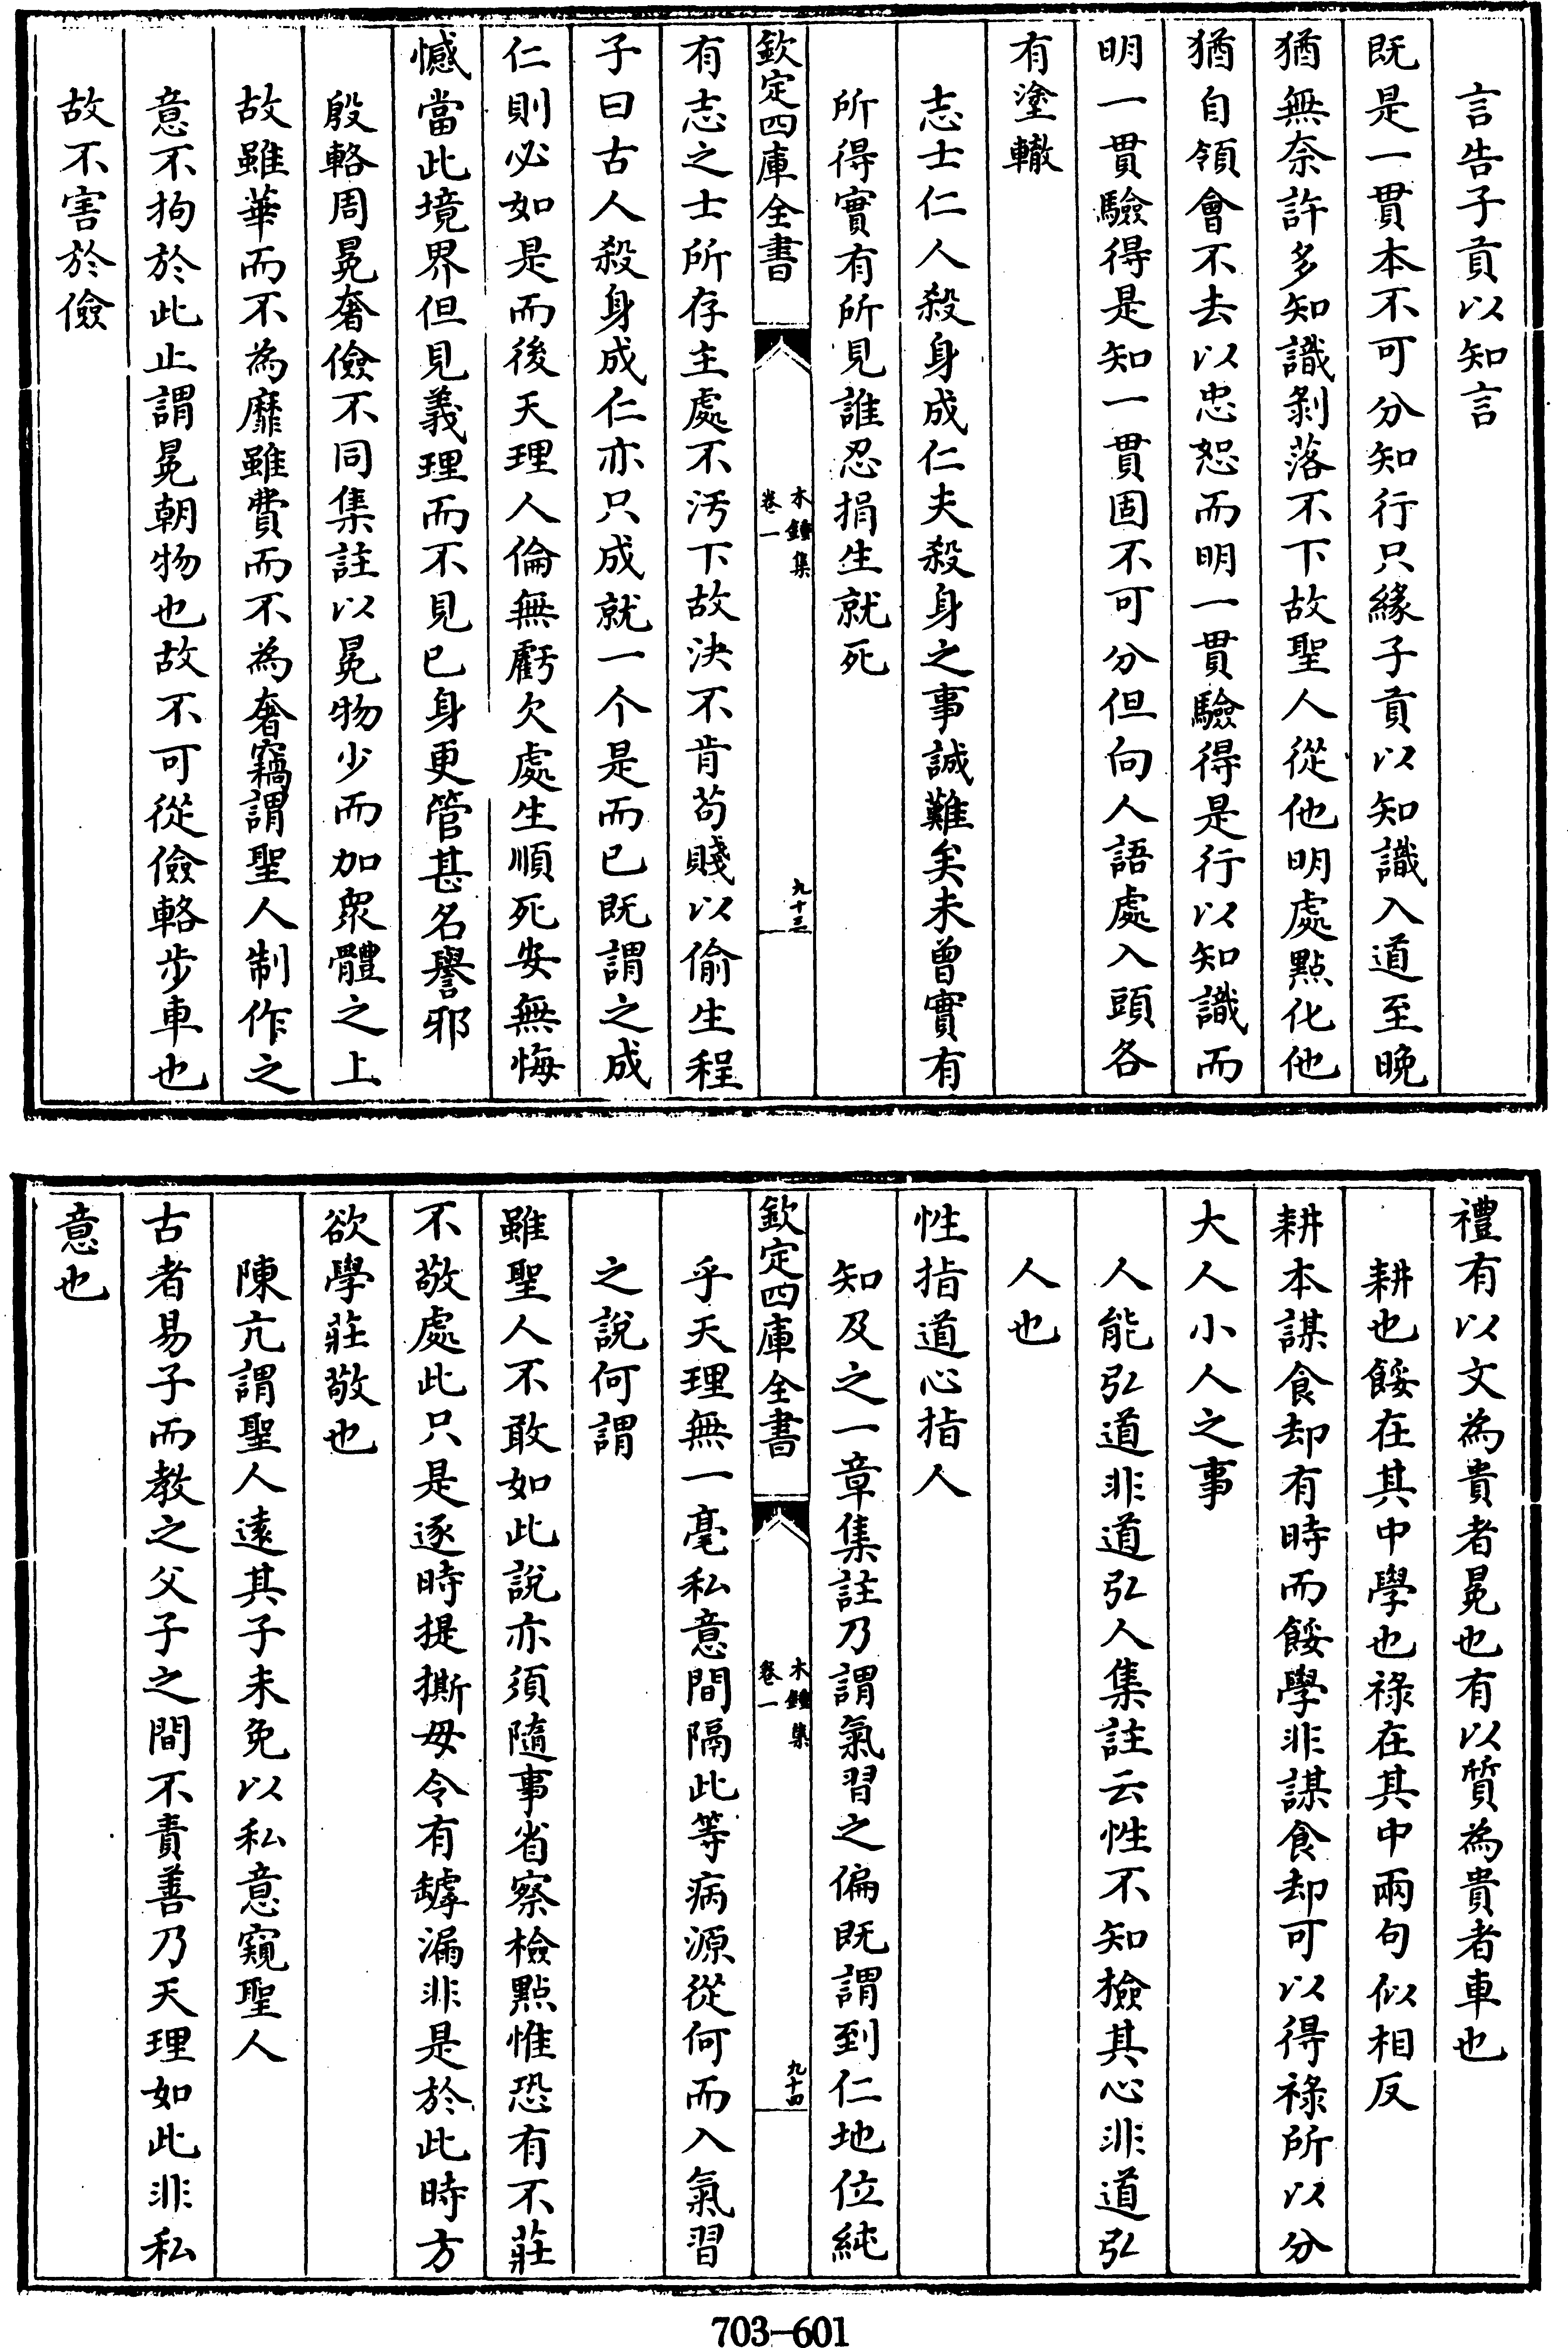 言告子貢以知言
既是一貫本不可分知行只緣子貢以知識入道至晚
猶無奈許多知識剝落不下故聖人從他明處點化他
猶自領會不去以忠恕而明一貫驗得是行以知識而
明一貫驗得是知一貫固不可分但向人語處入頭各
有塗轍
志士仁人殺身成仁夫殺身之事誠難矣未曾實有
所得實有所見誰忍捐生就死
欽定四庫全書
木鍾集
卷一
九十三
有志之士所存主處不汚下故決不肯苟賤以偷生程
子曰古人殺身成仁亦只成就一个是而已既謂之成
仁則必如是而後天理人倫無虧欠處生順死安無悔
憾當此境界但見義理而不見已身更管甚名譽邪
殷輅周冕奢儉不同集註以冕物少而加衆體之上
故雖華而不為靡雖費而不為奢竊謂聖人制作之
意不拘於此止謂冕朝物也故不可從儉輅步車也
故不害於儉
禮有以文為貴者冕也有以質為貴者車也
耕也餒在其中學也祿在其中兩句似相反
耕本謀食却有時而餒學非謀食却可以得祿所以分
大人小人之事
人能弘道非道弘人集註云性不知檢其心非道弘
人也
性指道心指人
知及之一章集註乃謂氣習之偏既謂到仁地位純
欽定四庫全書
木鍾集
卷一
九十四
乎天理無一毫私意間隔此等病源從何而入氣習
之說何謂
雖聖人不敢如此說亦須隨事省察檢點惟恐有不莊
不敬處此只是逐時提撕毋令有罅漏非是於此時方
欲學莊敬也
陳亢謂聖人遠其子未免以私意窺聖人
古者易子而教之父子之間不責善乃天理如此非私
意也
703-601